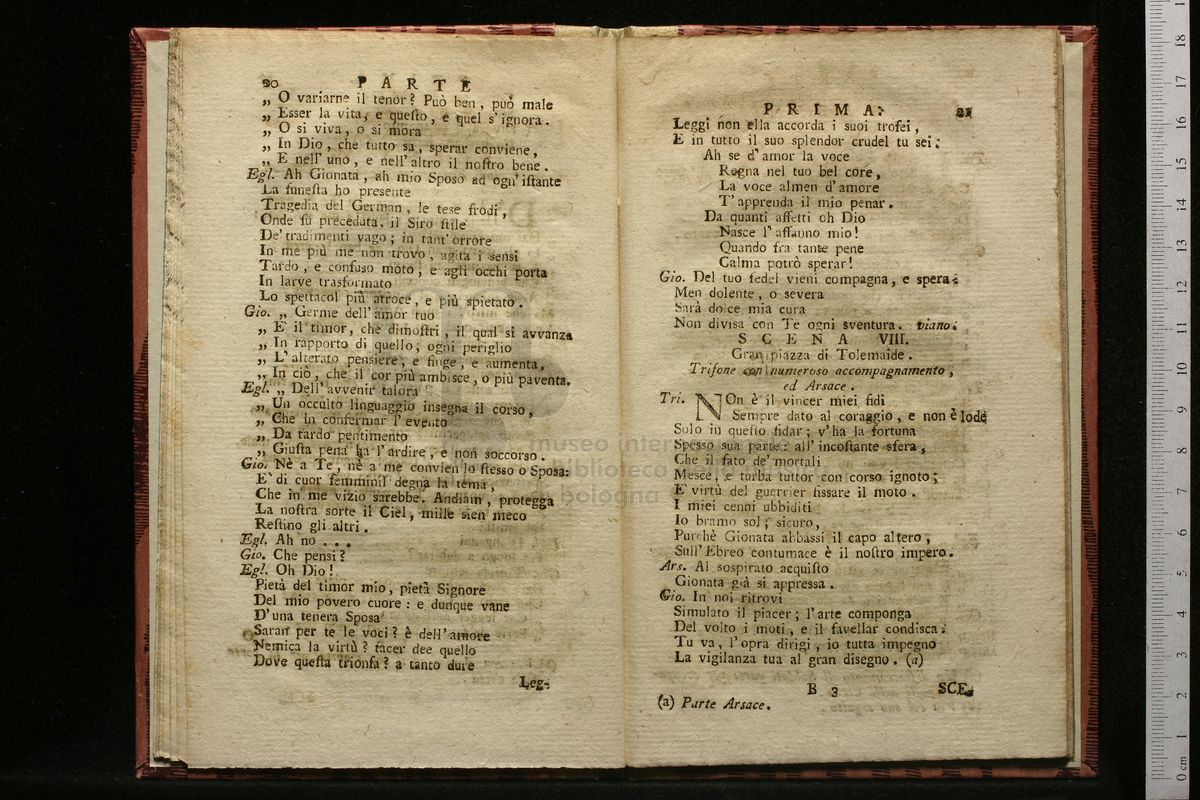 20 PARTE
„ O variarne il tenor? Può ben, può male
„ Esser la vita, e queſto, e quel s'ignora.
„ O si viva, o si mora
„ In Dio, che tutto sa, sperar conviene,
„ E nell' uno, e nell'altro il noſtro bene.
Egl. Ah Gionata, ah mio Sposo ad ogn'iſtante
La funeſta ho presente
Tragedia del German, le tese frodi,
Onde fu preceduta, il Siro ſtile
De' tradimenti vago; in tant'orrore
In me più me non trovo, agita i sensi
Tardo, e confuso moto, e agli occhi porta
In larve trasformato
Lo spettacol più atroce, e più spietato.
Gio. „ Germe dell'amor tuo
„ E' il timor, che dimoſtri, il qual si avvanza
„ In rapporto di quello; ogni periglio
„ L'alterato pensiere, e finge, e aumenta,
„ In ciò, che il cor più ambisce, o più paventa.
Egl. „ Dell'avvenir talora
„ Un occulto linguaggio insegna il corso,
„ Che in confermar l'evento
„ Da tardo pentimento
„ Giuſta pena ha l'ardire, e non soccorso.
Gio. Nè a Te, nè a me convien lo ſtesso o Sposa:
E' di cuor femminil degna la tema,
Che in me vizio sarebbe. Andiam, protegga
La noſtra sorte il Ciel, mille sien meco
Reſtino gli altri.
Egl. Ah no . . .
Gio. Che pensi?
Egl. Oh Dio!
Pietà del timor mio, pietà Signore
Del mio povero cuore: e dunque vane
D'una tenera Sposa
Saran per te le voci? è dell'amore
Nemica la virtù? tacer dee quello
Dove queſta trionfa? a tanto dure
Leg-
PRIMA. 21
Leggi non ella accorda i suoi trofei,
E in tutto il suo splendor crudel tu sei.
Ah se d'amor la voce
Regna nel tuo bel core,
La voce almen d'amore
T'apprenda il mio penar.
Da quanti affetti oh Dio
Nasce l'affanno mio!
Quando fra tante pene
Calma potrò sperar!
Gio. Del tuo fedel vieni compagna, e spera:
Men dolente, o severa
Sarà dolce mia cura
Non divisa con Te ogni sventura. viano.
SCENA VIII.
Gran piazza di Tolemaide.
Trifone con numeroso accompagnamento,
ed Arsace.
Tri. NOn è il vincer miei fidi
Sempre dato al coraggio, e non è lode
Solo in queſto fidar; v'ha la fortuna
Spesso sua parte: all'incoſtante sfera,
Che il fato de' mortali
Mesce, e turba tuttor con corso ignoto;
E' virtù del guerrier fissare il moto.
I miei cenni ubbiditi
Io bramo sol; sicuro,
Purchè Gionata abbassi il capo altero,
Sull'Ebreo contumace è il noſtro impero.
Ars. Al sospirato acquiſto
Gionata già si appressa.
Gio. In noi ritrovi
Simulato il piacer; l'arte componga
Del volto i moti, e il favellar condisca:
Tu va, l'opra dirigi, io tutta impegno
La vigilanza tua al gran disegno. (a)
B 3 SCE-
(a) Parte Arsace.
museo inter
biblioteca
bologna